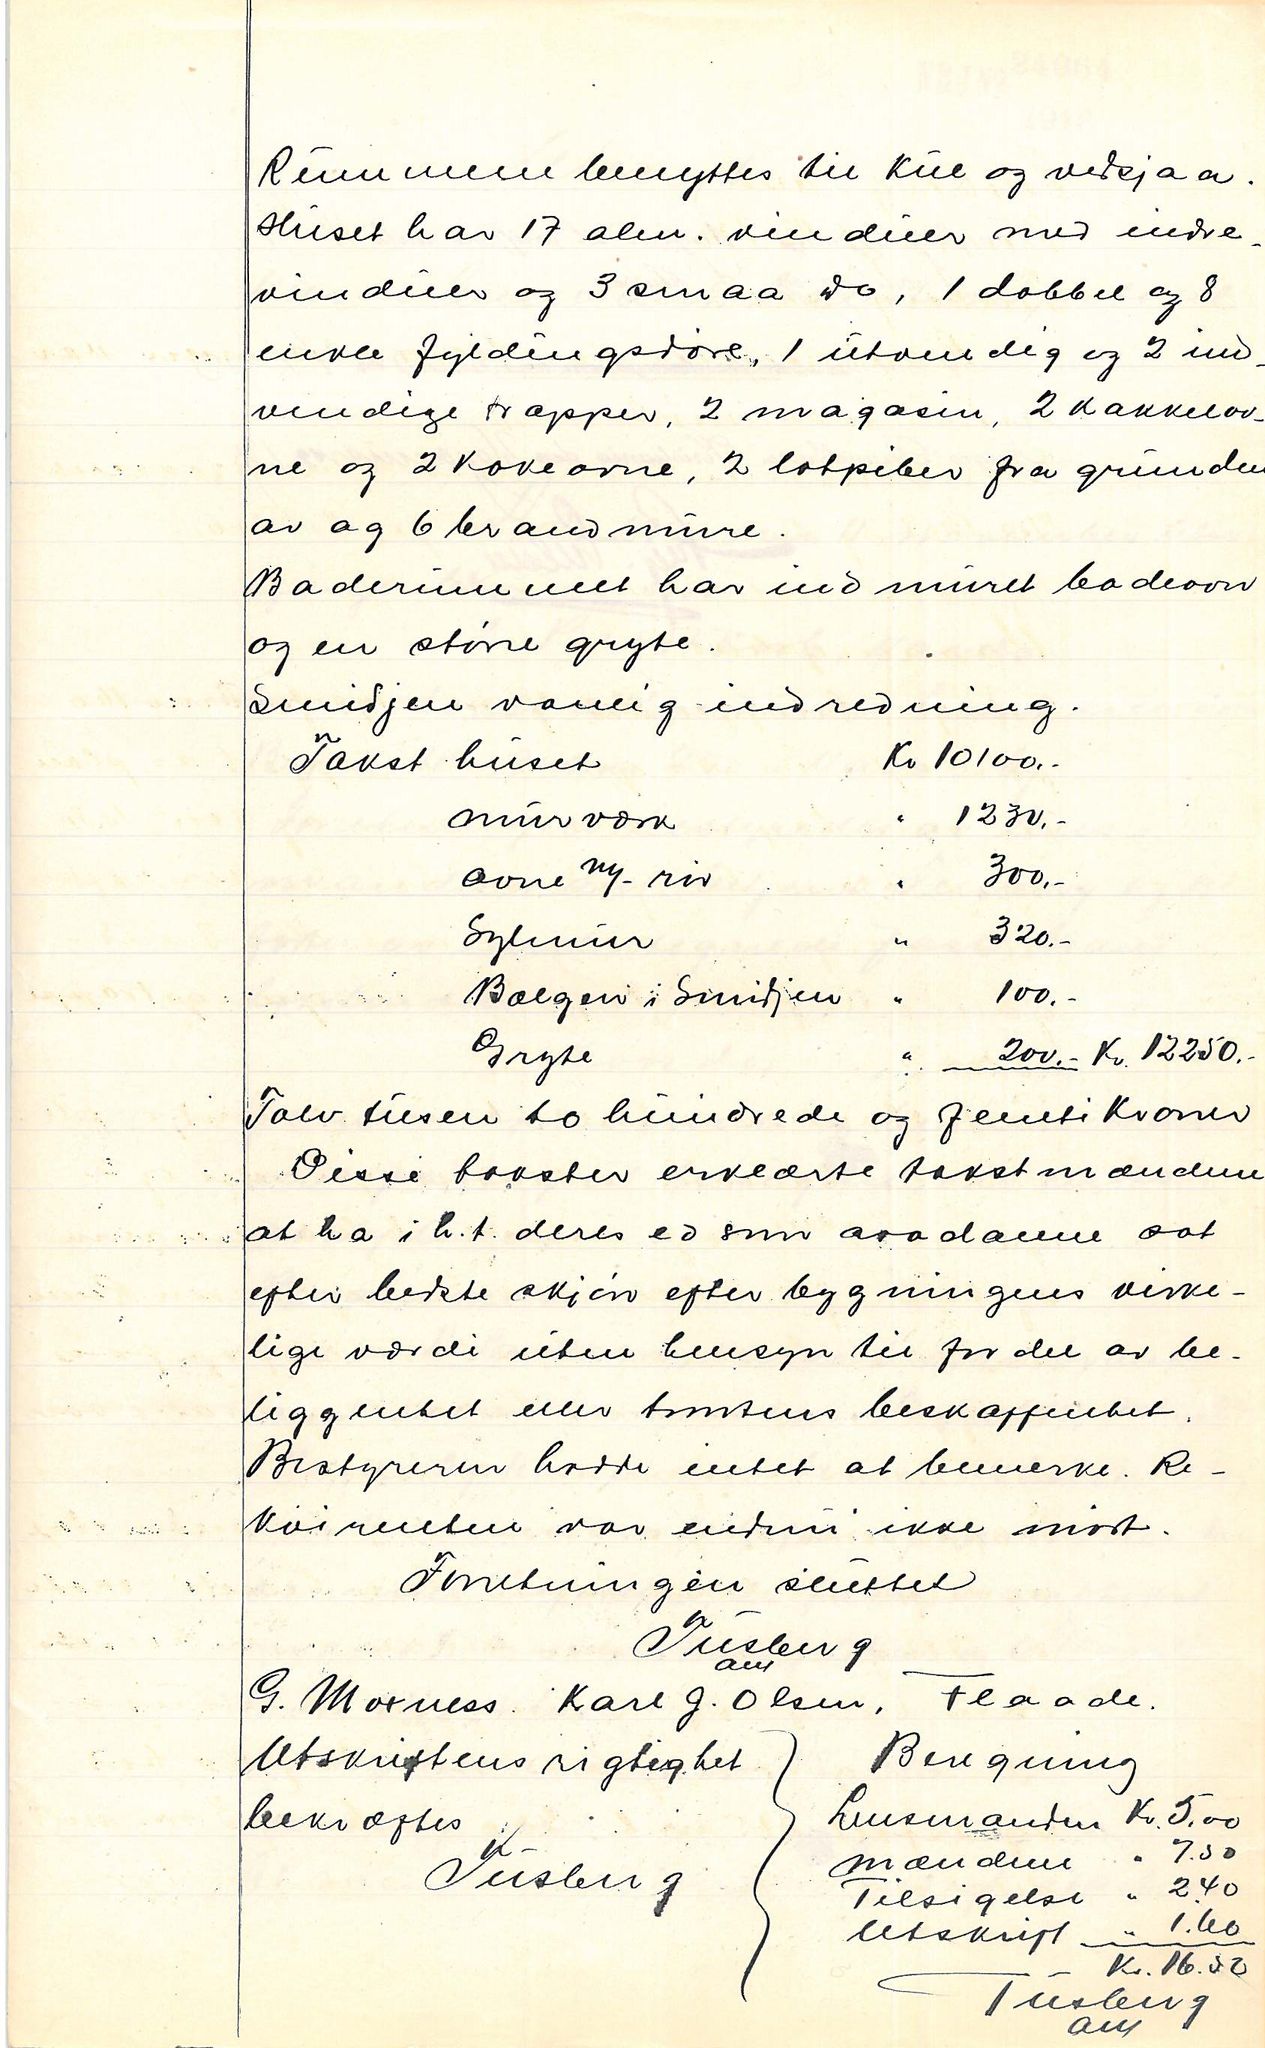 Rummene benyttes til kul og vedsjaa.
Huset har 17 alm. vinduer med indre-
vinduer og 3 smaa do, 1 dobbel og 8
enkle fyldingsdøre, 1 utvendig og 2 ind-
vendige trapper, 2 magasin, 2 kakkelov-
ne og 2 kokeovne, 2 lotpiber fra grunden
av og 6 brandmure.
Baderummet har indmuret badeovn
og en større gryte.
Smidjen vanlig indredning.
Takst huset Kr 10100.-
murværk " 1230.-
ovne rör " 300.-
Sylmur " 320.-
Bælgen i Smidjen " 100.-
Gryte " 200.- Kr. 12250.-
Tolv tusen to hundrede og femti Kroner
Disse takster erklærte takstmændene
at ha i h.t. deres ed som saadanne sat
efter bedste skjøn efter bygningens virke-
lige værdi uten hensyn til fordel av be-
liggenhet eller tomtens beskaffenhet.
Bestyreren hadde intet at bemerke. Re-
kvirenten var endnu ikke møtt.
Forretningen sluttet
Tusberg
G. Moxness. Karl J. Olsen, Flaade.
Utskriftens rigtighet
bekræftes
Tusberg
Beregning
Lensmanden Kr. 5,00
mændene " 7.50
Tilsigelse " 2.40
Utskrift " 1.60
Kr. 16.50
Tusberg